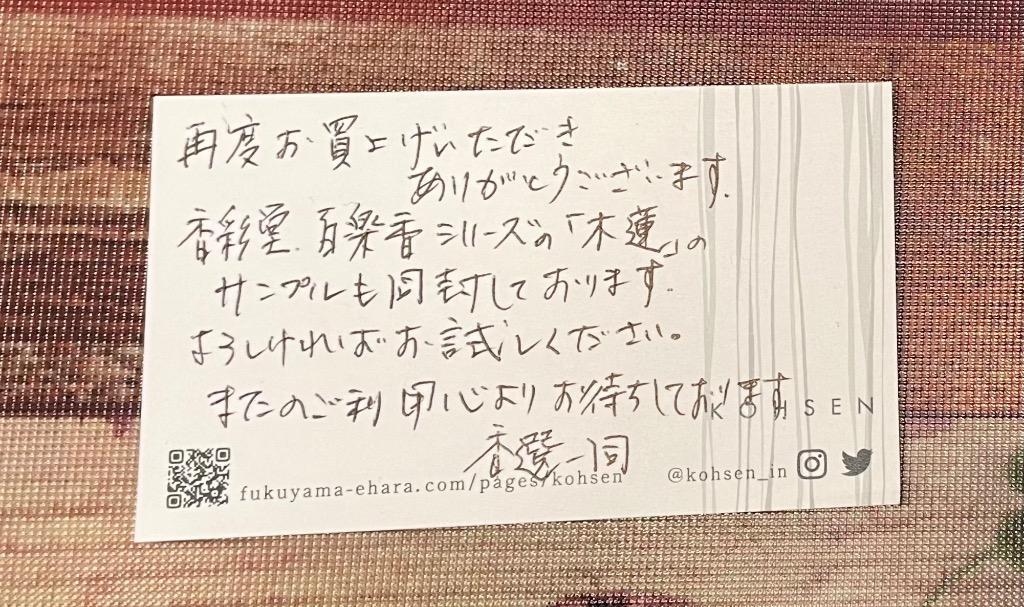 再度お買上げいただき
ありがとうございます.
香彩堂.百楽香シリーズの「木蓮」の
サンプルも同封しております.
よろしければお試しください。
またのご利用心よりお待ちしております
KOHSEN
香選一同
fukuyama-ehara.com/pages/kohsen
@kohsen_in